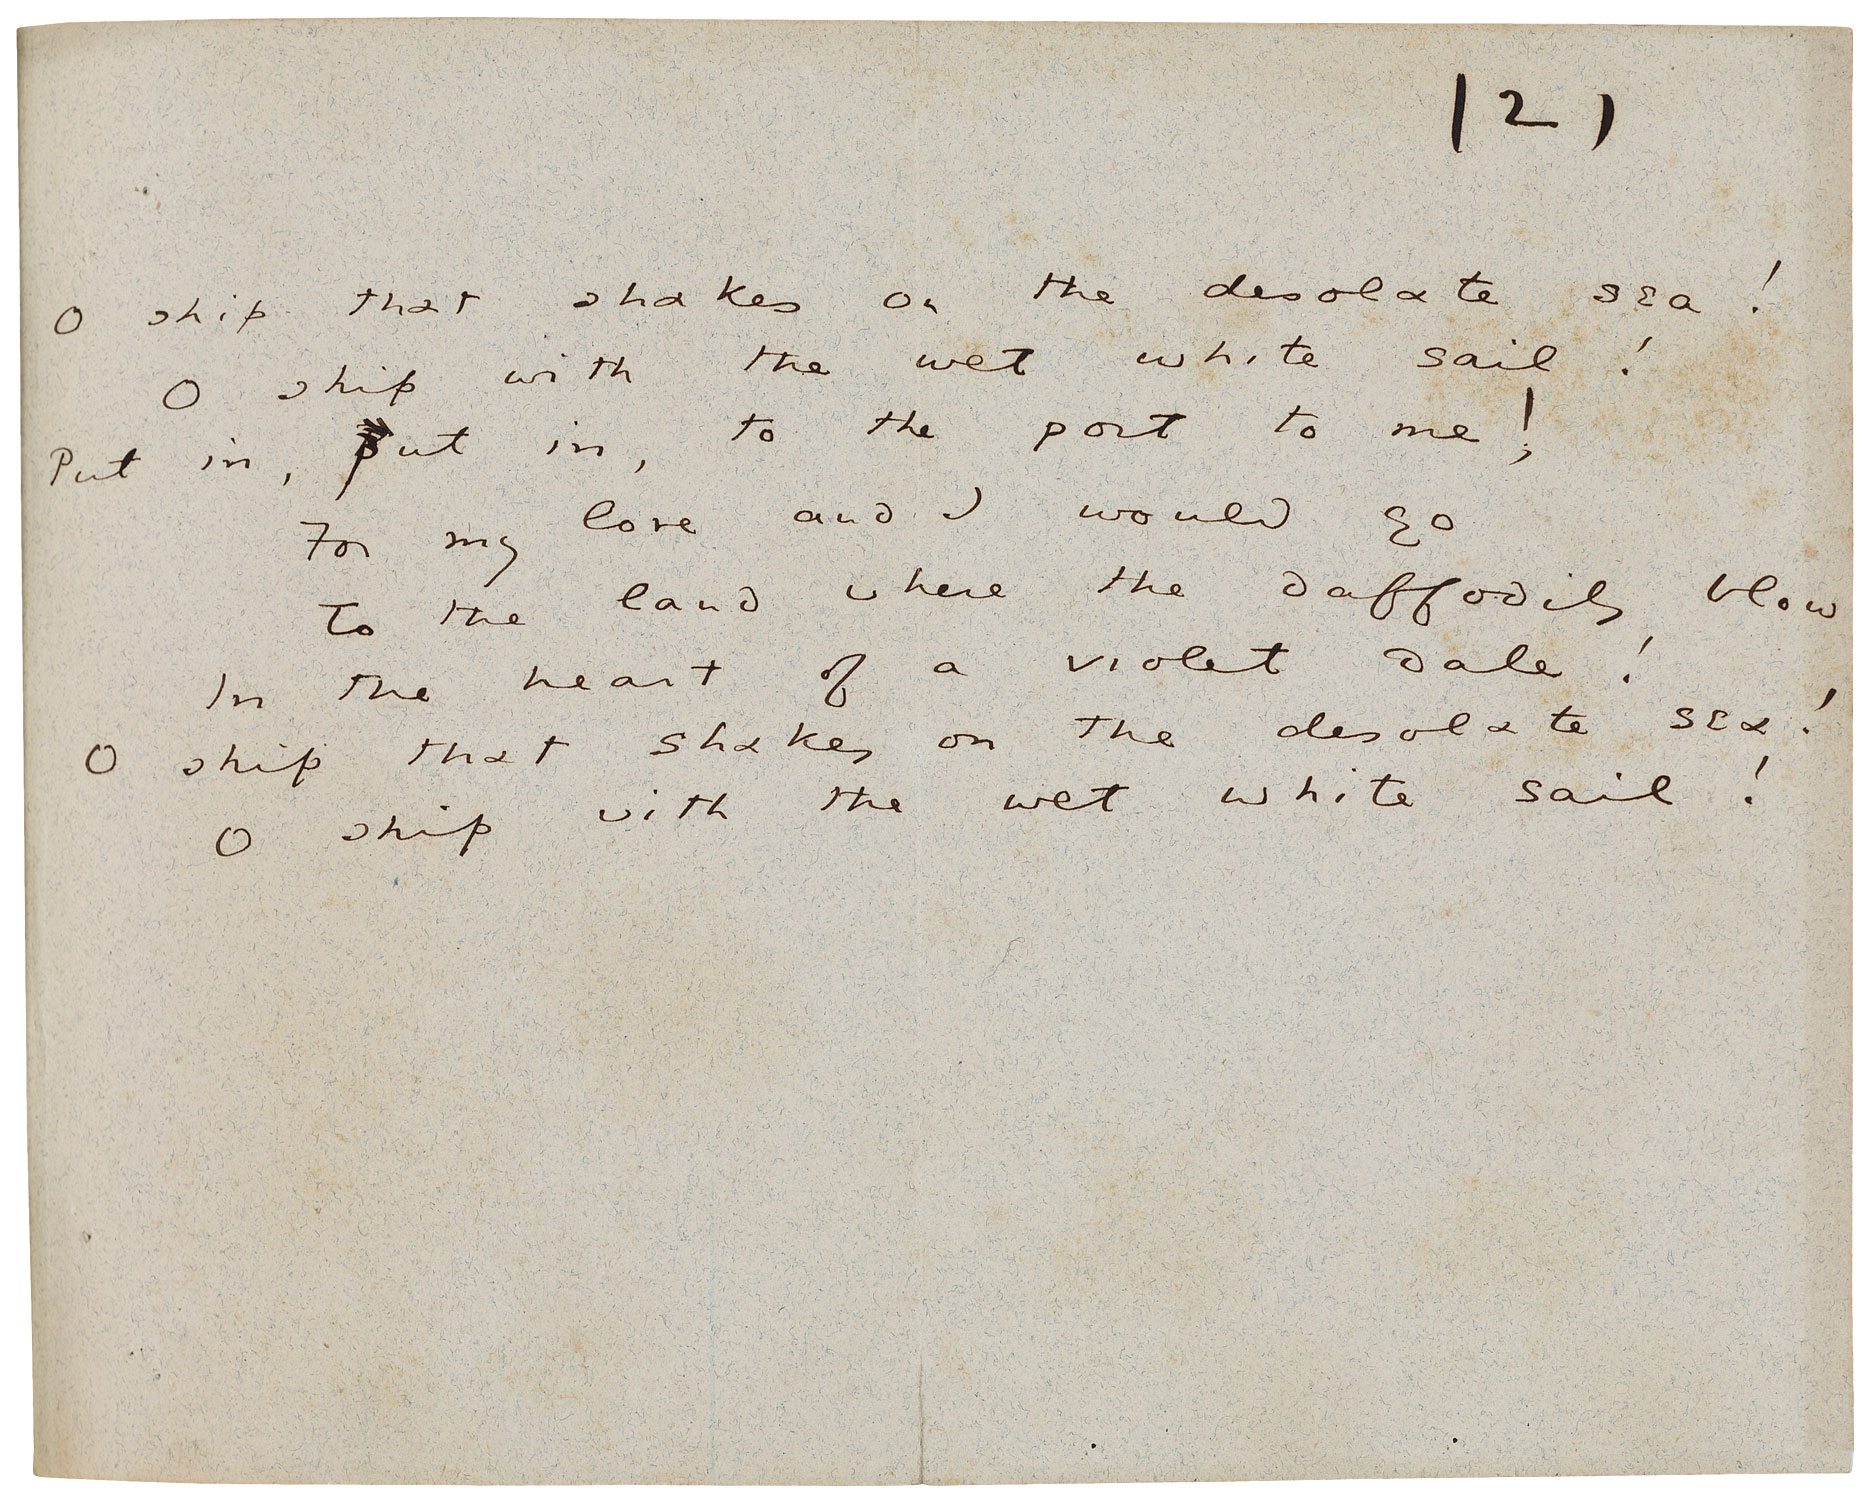 (2)
O ship that shakes on the desolate sea!
O ship with the wet white sail!
Put in, put in, to the port to me!
For my love and I would go
To the land where the daffodils blow
In the heart of a violet dale!
O ship that shakes on the desolate sea!
O ship with the wet white sail!